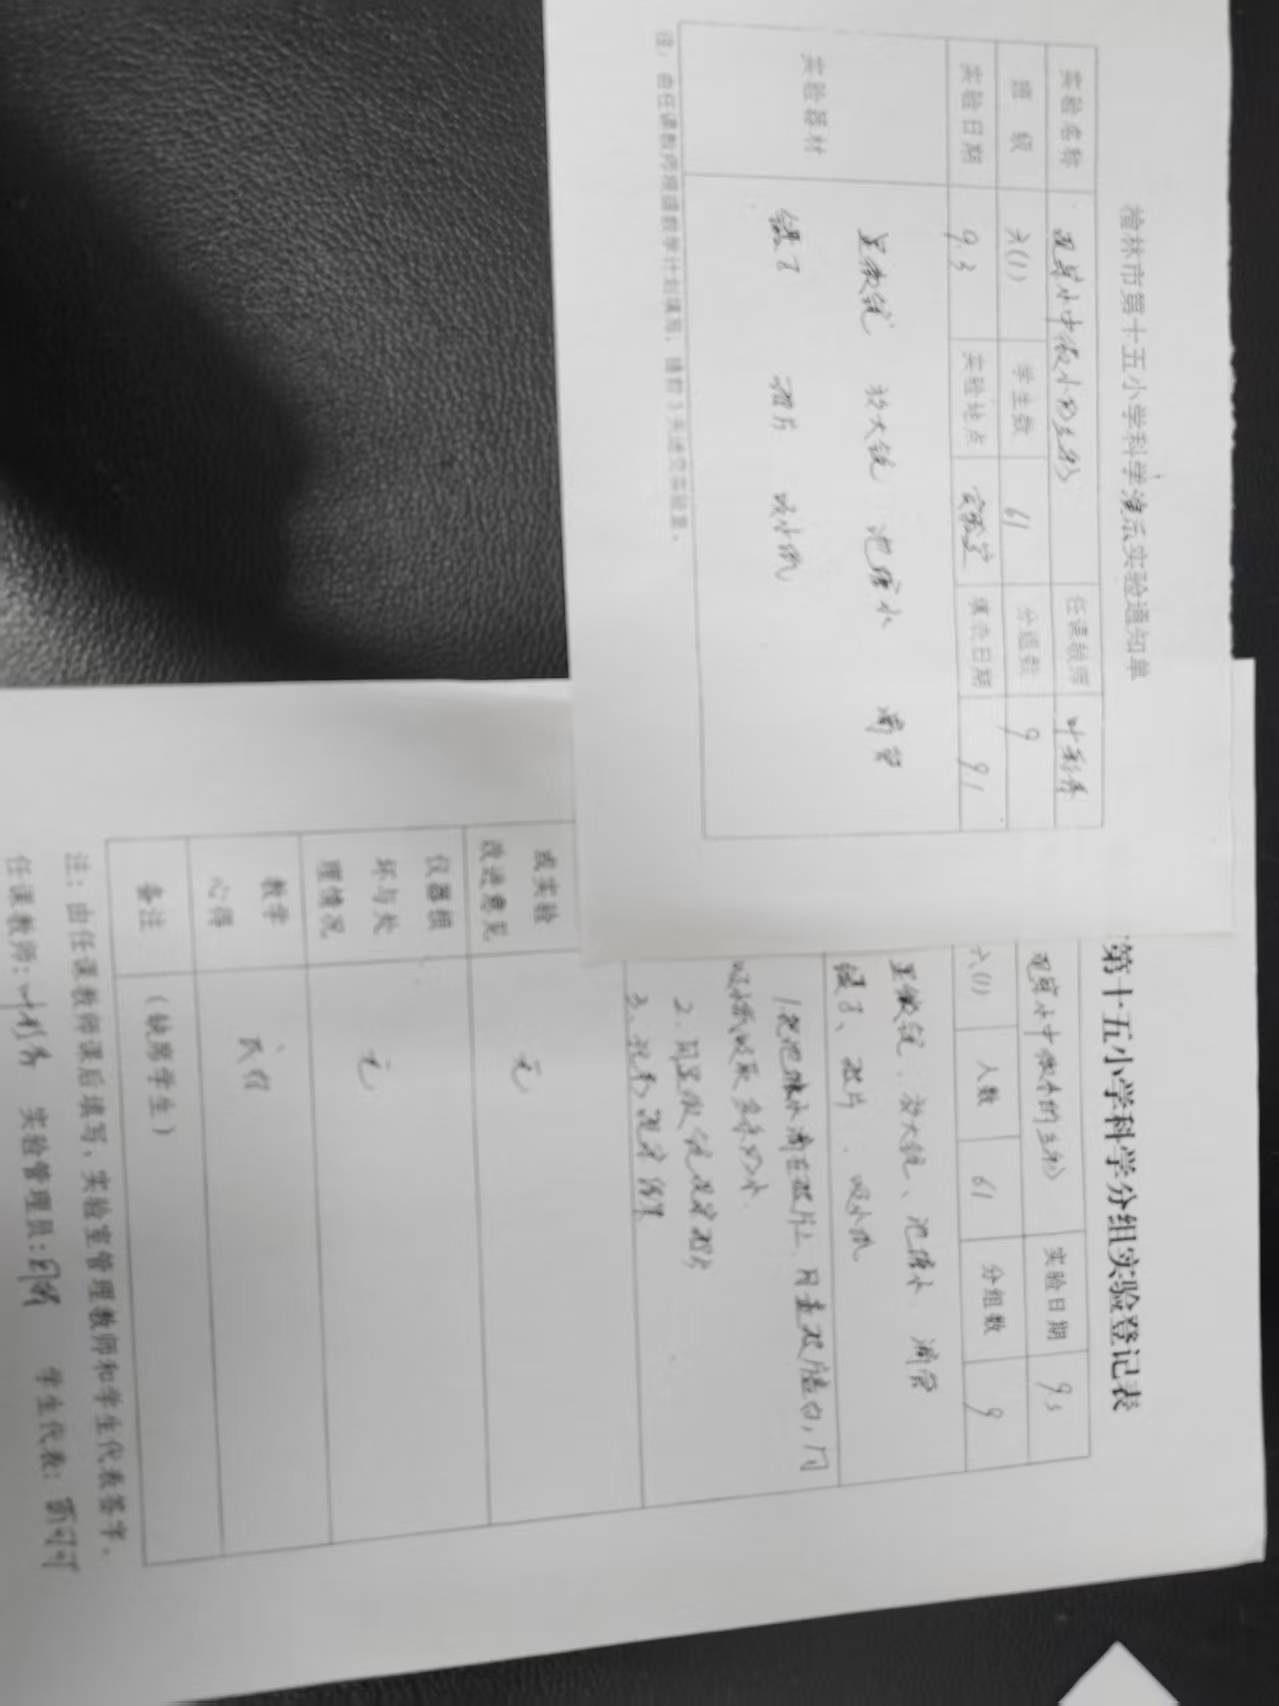 榆林市第十五小学科学演示实验通知单
实验名称 观察水中微小的生物 任课教师
班级 六(1) 学生数 61 分组数 9
实验日期 9.3 实验地点 实验室 填表日期 9.1
实验器材 显微镜 放大镜 池塘水 滴管
镊子 载片 吸水纸
注：由任课教师根据教学计划填写，提前3天送交实验室。
第十五小学科学分组实验登记表
观察水中微小的生物 实验日期 9.3
六(1) 人数 61 分组数 9
显微镜、放大镜、池塘水 滴管
镊子、载片、吸水纸
1.把池塘水滴在载片上，用盖玻片盖均，用
吸水纸吸取多余的水.
2.用显微镜观察载片
3.
或实验
改进意见 无
仪器损
坏与处
理情况 无
教学
心得
备注 (缺席学生)
注：由任课教师课后填写，实验室管理教师和学生代表签字。
任课教师: 实验管理员: 学生代表: